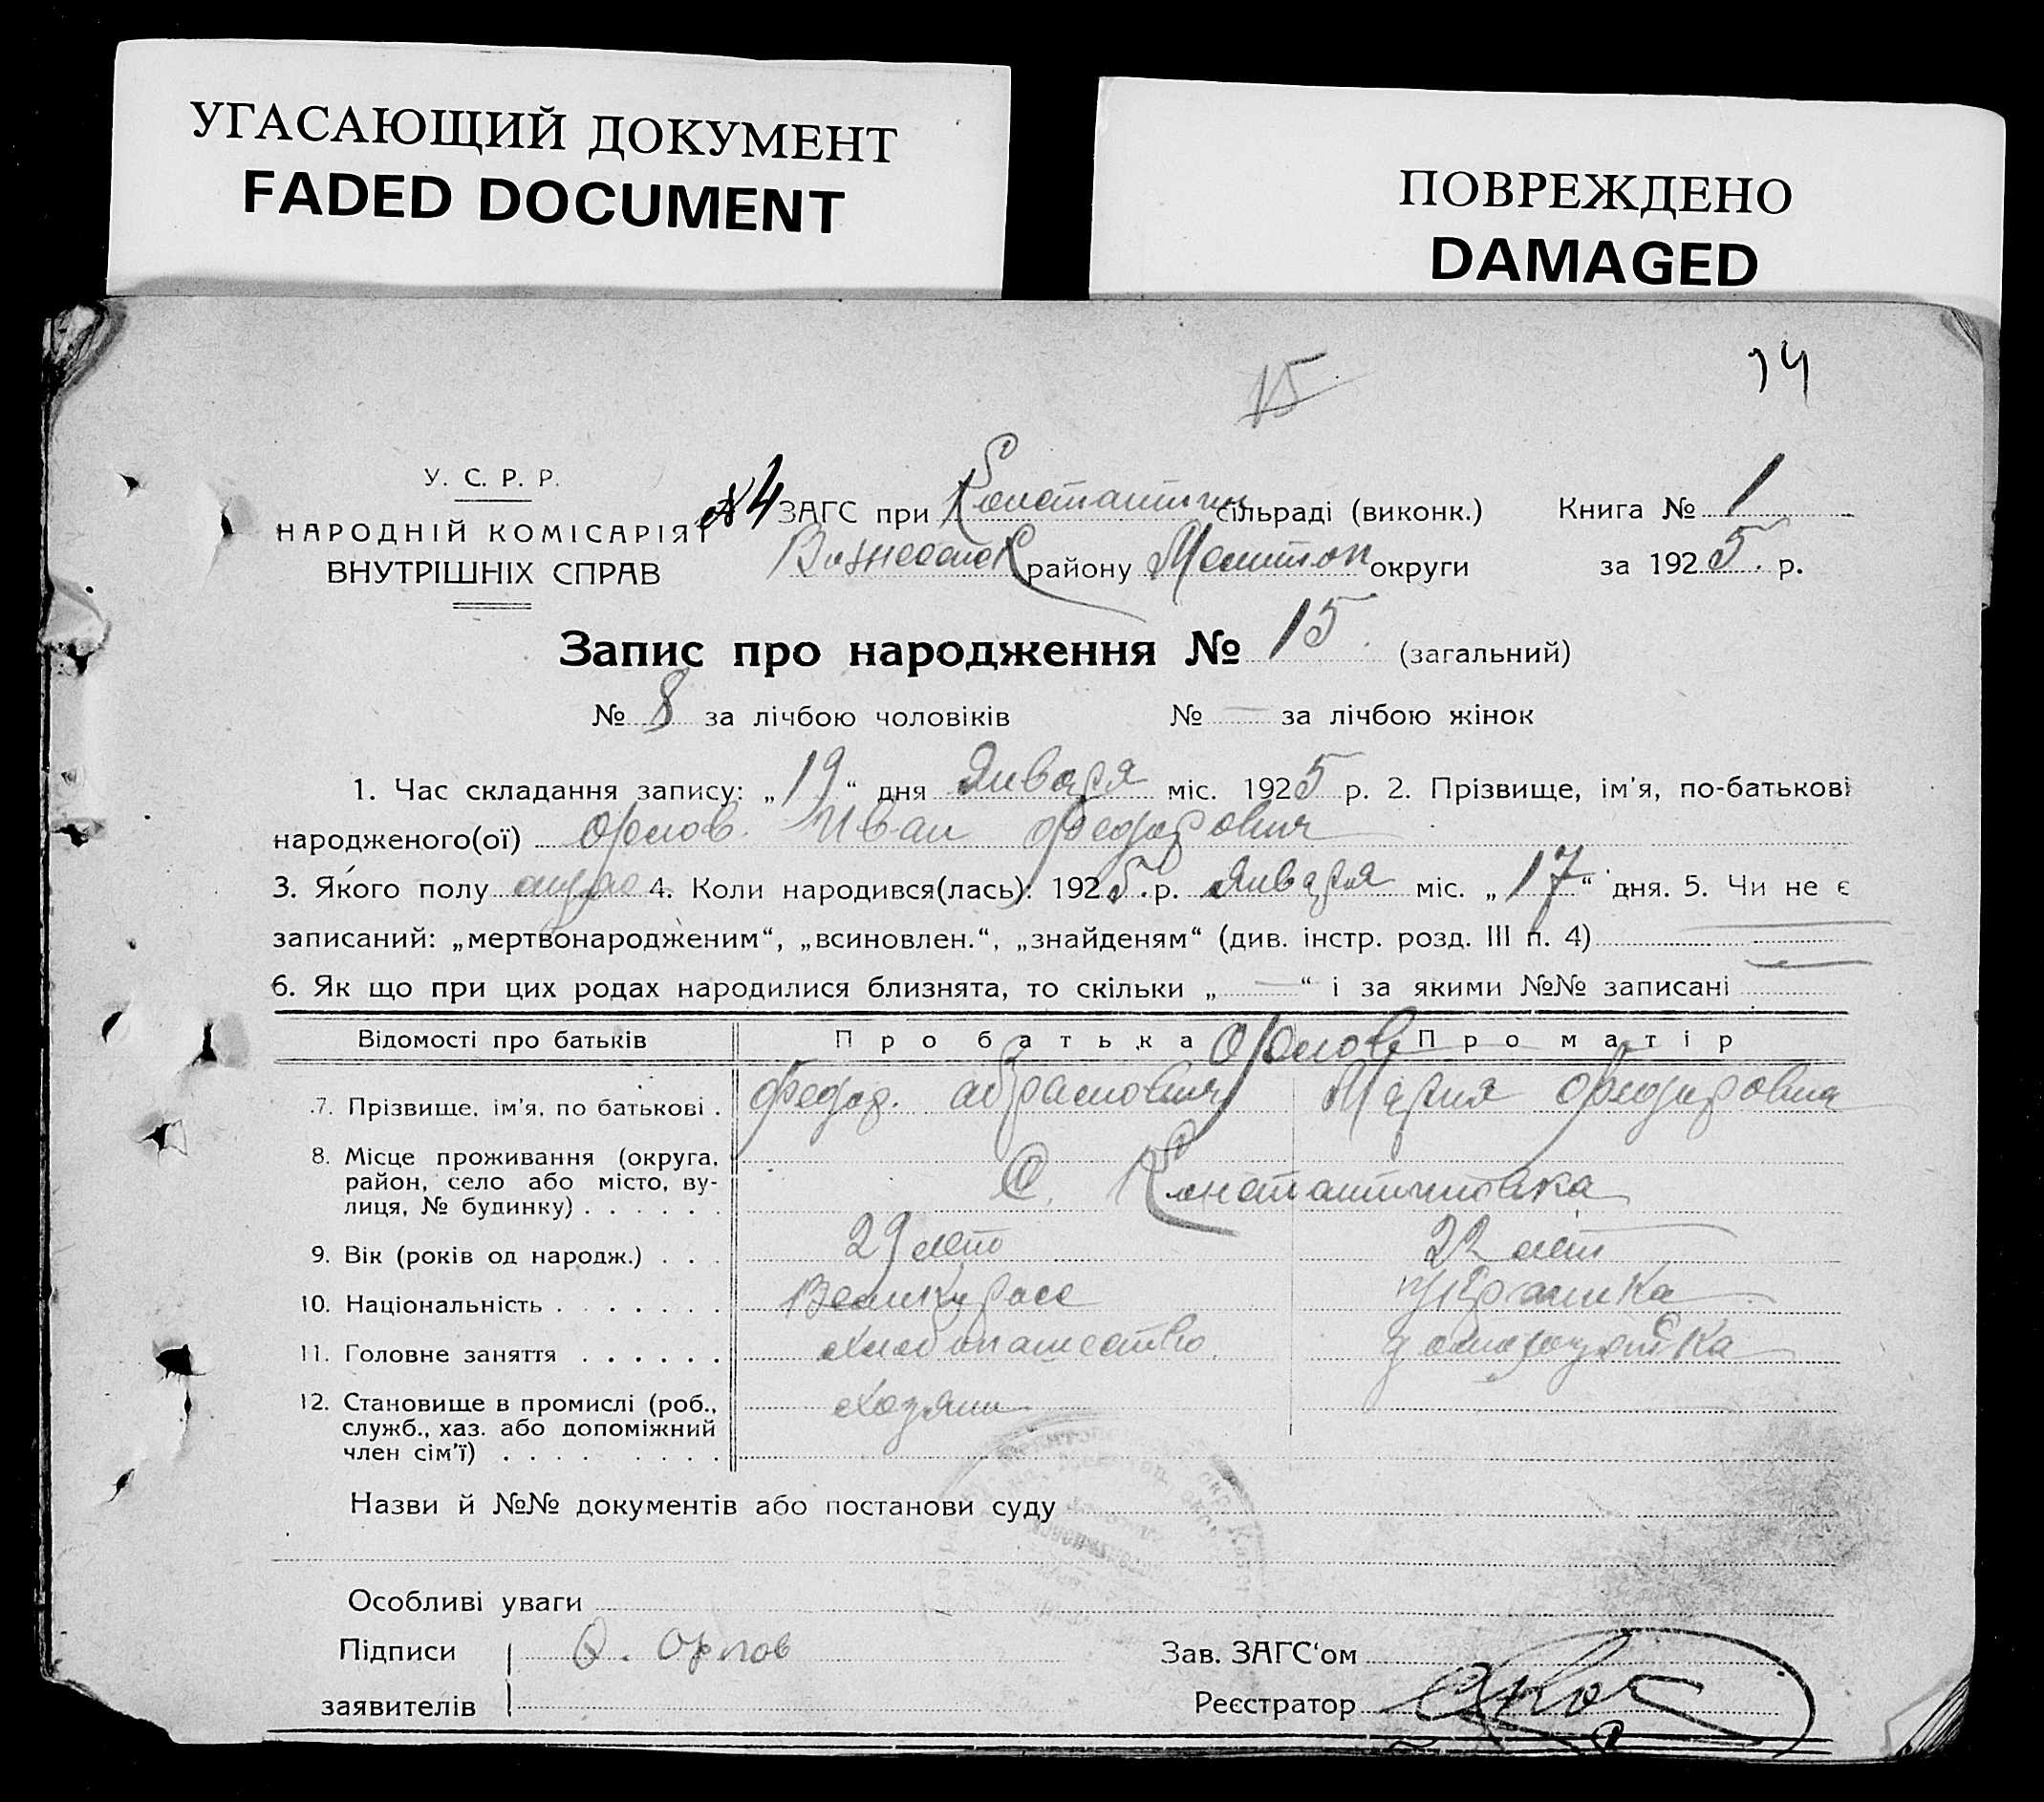 УГАСАЮЩИЙ ДОКУМЕНТ
FADED DOCUMENT
ПОВРЕЖДЕНО
DAMAGED
15
14
У. С. Р. Р.
НАРОДНІЙ КОМІСАРІЯТ
ВНУТРІШНІХ СПРАВ
№4 ЗАГС при Константин сільраді (виконк.) Книга № 1
Вознесенск району Мелитоп округи за 1925 р.
Запис про народження № 15 (загальний)
№ 8 за лічбою чоловіків № — за лічбою жінок
1. Час складання запису: „19“ дня Января міс. 1925 р. 2. Прізвище, ім'я, по-батькові
народженого(ої) Орлов Иван Федорович
3. Якого полу 4. Коли народився(лась): 1925 р. Января міс. „17“ дня. 5. Чи не є
записаний: „мертвонародженим“, „всиновлен.“, „знайденям“ (див. інстр. розд. III п. 4)
6. Як що при цих родах народилися близнята, то скільки „—“ і за якими №№ записані
Відомості про батьків Про батька Орлов Про матір
7. Прізвище, ім'я, по батькові . Федор. Абрамович Мария Федоровна
8. Місце проживання (округа,
район, село або місто, ву-
лиця, № будинку) . . . . . . С. Константиновка
9. Вік (років од народж.) . . . 29 лет 22 лет
10. Національність . . . . . . . Великорос Украинка
11. Головне заняття . . . . . . Хлебопашество домохозяйка
12. Становище в промислі (роб.,
служб., хаз. або допоміжний
член сім'ї) . . . . . . . . Хозяин
Назви й №№ документів або постанови суду
Особливі уваги
Підписи Ф. Орлов Зав. ЗАГС'ом
заявителів Реєстратор